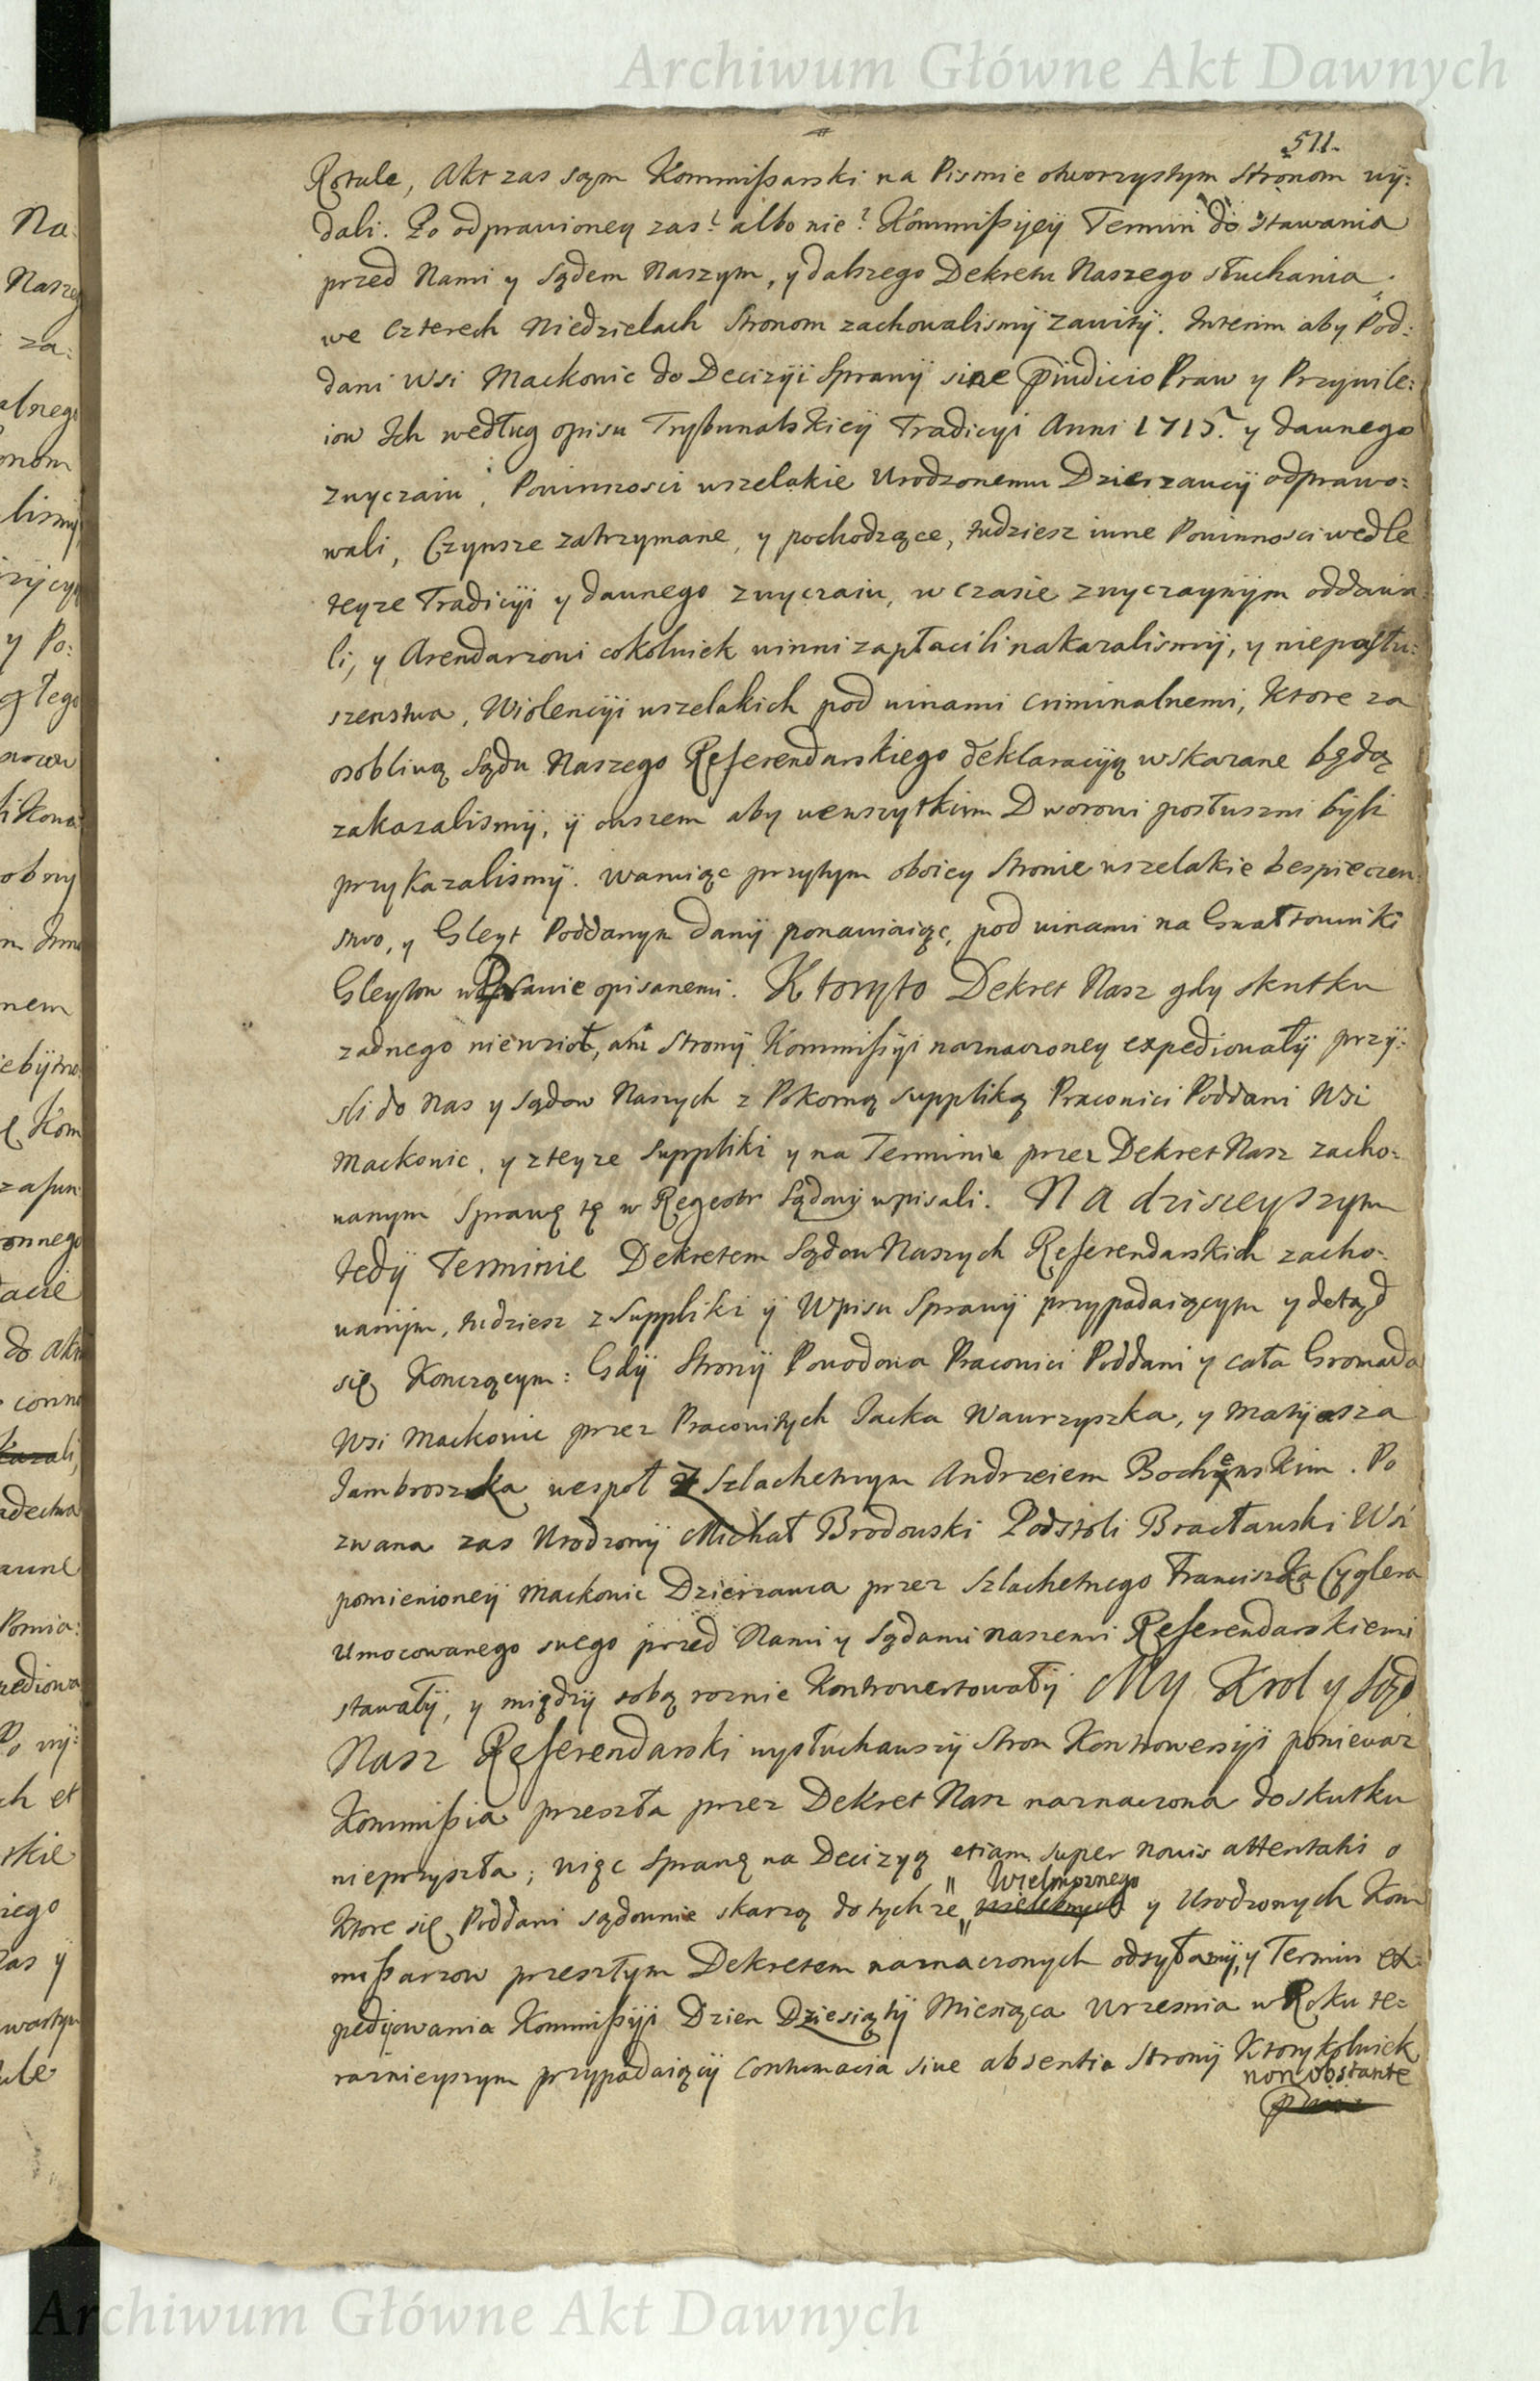 Archiwum Główne Akt Dawnych
511.
Rotule, Akt zas sąm Kommißarski na Pismie otworzystym Stronom wÿ:
dali. Po odprawioney zas? albo nie? Kommißÿeÿ Termin do stawania
przed Nami y Sądem Naszym, y dalszego Dekretu Naszego słuchania.
we czterech Niedzielach Stronom zachowalismÿ zawitÿ. Interim aby Pod:
dani Wsi Mackowic do Decizÿi Sprawÿ sine Pjudicio Praw y Przywile:
iow Ich według opisu Trybunalskieÿ Tradicyi Anni 1715. y dawnego
zwyczaiu, Powinnosci wszelakie Urodzonemu Dzierzawcÿ odprawo:
wali, Czynsze zatrzymane, y pochodzące, tudziesz inne Powinnosci wedle
teyze Tradicÿi y dawnego zwyczaiu, w czasie zwyczaynÿm oddawa
li, y Arendarzowi cokolwiek winni zapłacili nakazalismÿ, y niepostłu:
szenstwa, Wiolencÿi wszelakich pod winami criminalnemi, Ktore za
osobliwą Sądu Naszego Referendarskiego deklaracÿą wskazane będą
zakazalismÿ, ÿ owszem aby wewszytkim Dworowi posłuszni bÿli
przykazalismÿ. Waruiąc przytym oboiey Stronie wszelakie bespieczen:
stwo, y Gleyt Poddanym danÿ ponawiaiąc, pod winami na Gwałtowniki
Gleytow w Prawie opisanemi. Ktoryto Dekret Nasz gdy skutku
zadnego niewzioł, ani Stronÿ Kommißÿi naznaczoney expediowałÿ przÿ:
sli do Nas y Sądow Naszych z Pokorną suppliką Pracowici Poddani Wsi
Mackowic, y zteyze Suppliki y na Terminie przez Dekret Nasz zacho:
wanym Sprawę tę w Regestr Sądowÿ wpisali. Na dzisieyszym
tedÿ Terminie Dekretem Sądow Naszych Referendarskich zacho:
wanÿm, tudziesz z Suppliki ÿ Wpisu Sprawÿ przypadaiącym y dotąd
się Konczącym: Gdÿ Stronÿ Powodowa Pracowici Poddani y cała Gromada
Wsi Mackowic przez Pracowitych Jacka Wawrzyszka, y Matÿasza
Jambroszka wespoł z Szlachetnym Andrzeiem Bochenskim. Po
zwana zas Urodzonÿ Michał Brodowski Podstoli Bracławski Wsi
pomienioneÿ Mackowic Dzierzawca przez Szlachetnego Franciszka Cyglera
Umocowanego swego przed Nami y Sądami naszemi Referendarskiemi
stawałÿ, y międzÿ sobą roznie Kontrowertowałÿ My Krol y Sąd
Nasz Referendarski wysłuchawszÿ Stron Kontrowersÿi poniewaz
Kommißia przeszła przez Dekret Nasz naznaczona do skutku
nieprzyszła; więc Sprawę na Decizyą etiam super novis attentatis o
Wielmoznego
Ktore się Poddani sądownie skarzą do tych ze y Urodzonych Kom
mißarzow przeszłym Dekretem naznaczonych odsyłamÿ, y Termin ex:
pedÿowania Kommißÿi Dzien Dziesiątÿ Miesiąca Wrzesnia w Roku te:
raznieyszym przypadaiącÿ Contumacia sive absentia Stronÿ Ktorykolwiek
non obstante
Archiwum Główne Akt Dawnych